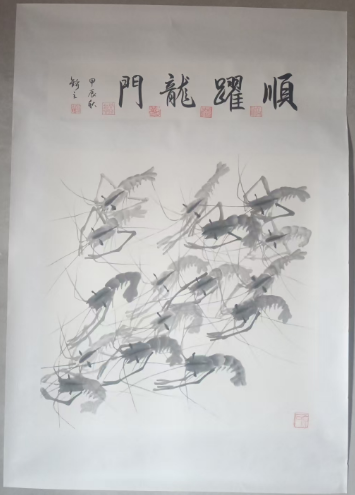 順躍龍門
甲辰秋